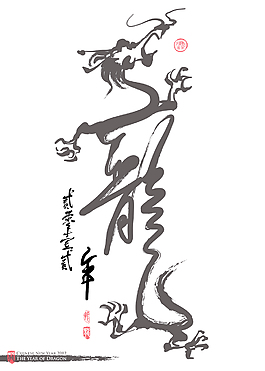 龍
貳零壹貳
年
CHINESE NEW YEAR 2012
THE YEAR OF DRAGON